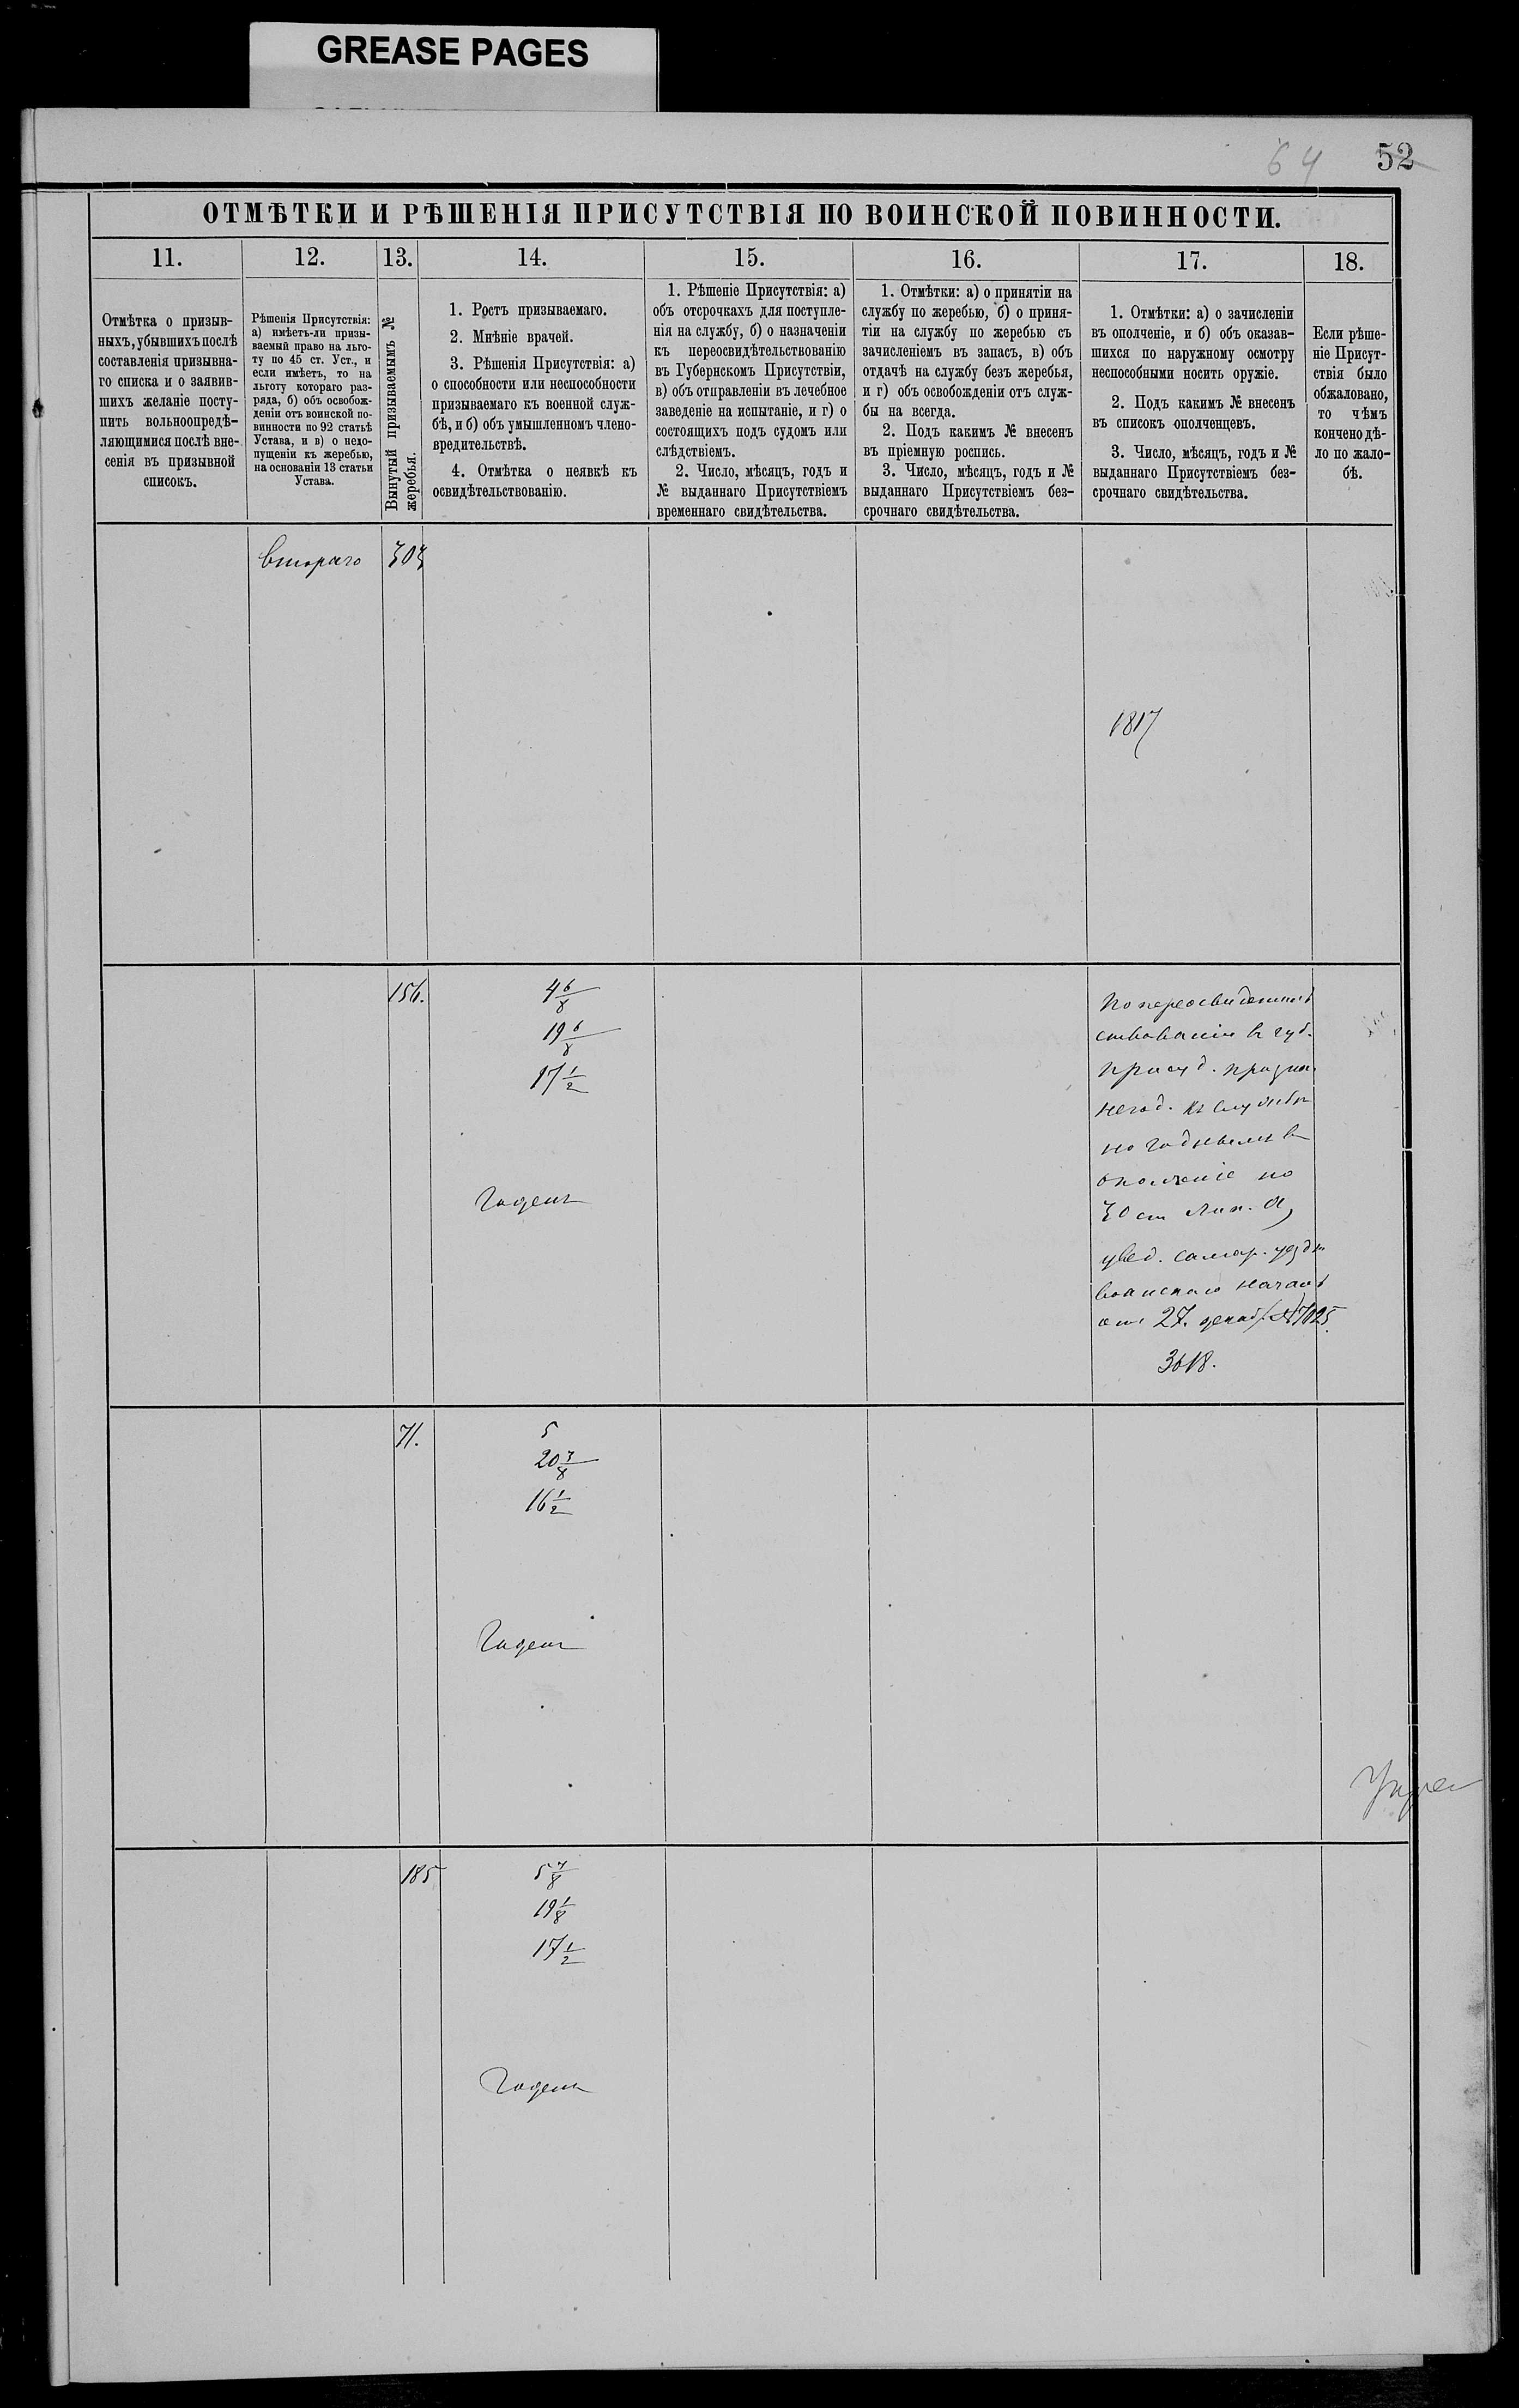 GREASE PAGES
64 52
ОТМѢТКИ И РѢШЕНІЯ ПРИСУТСТВІЯ ПО ВОИНСКОЙ ПОВИННОСТИ.
11.
Отмѣтка о призыв-
ныхъ, убывшихъ послѣ
составленія призывна-
го списка и о заявив-
шихъ желаніе посту-
пить вольноопредѣ-
ляющимися послѣ вне-
сенія въ призывной
списокъ.
12.
Рѣшенія Присутствія:
а) имѣетъ-ли призы-
ваемый право на льго-
ту по 45 ст. Уст., и
если имѣетъ, то на
льготу котораго раз-
ряда, б) объ освобож-
деніи отъ воинской по-
винности по 92 статьѣ
Устава, и в) о недо-
пущеніи къ жеребью,
на основаніи 13 статьи
Устава.
13.
Вынутый призываемымъ №
жеребья.
14.
1. Ростъ призываемаго.
2. Мнѣніе врачей.
3. Рѣшенія Присутствія: а)
о способности или неспособности
призываемаго къ военной служ-
бѣ, и б) объ умышленномъ члено-
вредительствѣ.
4. Отмѣтка о неявкѣ къ
освидѣтельствованію.
15.
1. Рѣшеніе Присутствія: а)
объ отсрочкахъ для поступле-
нія на службу, б) о назначеніи
къ переосвидѣтельствованію
въ Губернскомъ Присутствіи,
в) объ отправленіи въ лечебное
заведеніе на испытаніе, и г) о
состоящихъ подъ судомъ или
слѣдствіемъ.
2. Число, мѣсяцъ, годъ и
№ выданнаго Присутствіемъ
временнаго свидѣтельства.
16.
1. Отмѣтки: а) о принятіи на
службу по жеребью, б) о приня-
тіи на службу по жеребью съ
зачисленіемъ въ запасъ, в) объ
отдачѣ на службу безъ жеребья,
и г) объ освобожденіи отъ служ-
бы на всегда.
2. Подъ какимъ № внесенъ
въ пріемную роспись.
3. Число, мѣсяцъ, годъ и №
выданнаго Присутствіемъ без-
срочнаго свидѣтельства.
17.
1. Отмѣтки: а) о зачисленіи
въ ополченіе, и б) объ оказав-
шихся по наружному осмотру
неспособными носить оружіе.
2. Подъ какимъ № внесенъ
въ списокъ ополченцевъ.
3. Число, мѣсяцъ, годъ и №
выданнаго Присутствіемъ без-
срочнаго свидѣтельства.
18.
Если рѣше-
ніе Присут-
ствія было
обжаловано,
то чѣмъ
кончено дѣ-
ло по жало-
бѣ.
втораго 303
1817
156.
4 6/8
19 6/8
17 1/2
Годенъ
По переосвидетель
ствованіи въ губ.
присуд. призна.
негод. къ службѣ
но годнымъ въ
ополченіе по
30 ст Лит. А,
увед. самар. уѣздн
воинскаго начал
отъ 27. декаб. № 7025.
3618.
71.
5
20 3/8
16 1/2
Годенъ
185
5 7/8
19 1/8
17 1/2
Годенъ